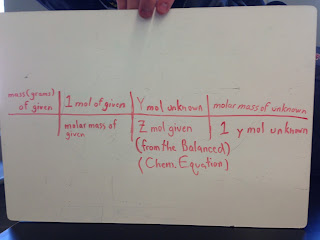 mass (grams) of given | 1 mol of given | Y mol unknown | molar mass of unknown
molar mass of given | Z mol given | 1 y mol unknown
(from the Balanced)
(Chem. Equation)